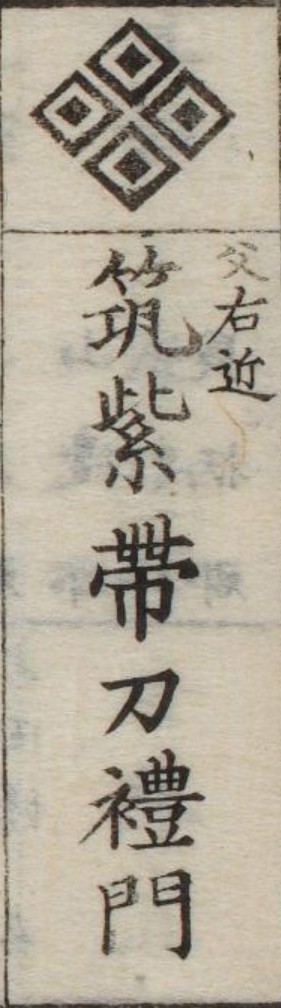 父右近
筑紫帶刀禮門